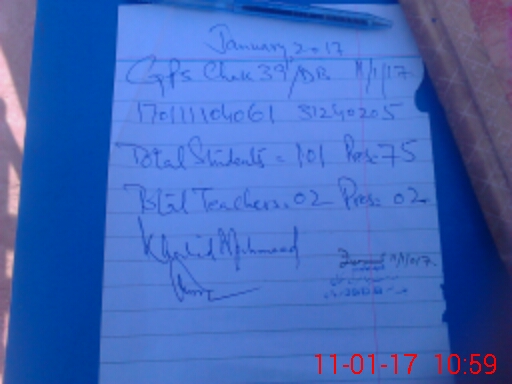 January, 2017
GPS Chak 39/DB 11/1/17
170111104061 31240205
Total Students = 101 Pres = 75
Total Teachers = 02 Pres = 02
Khalid Mehmood
11-01-17 10:59